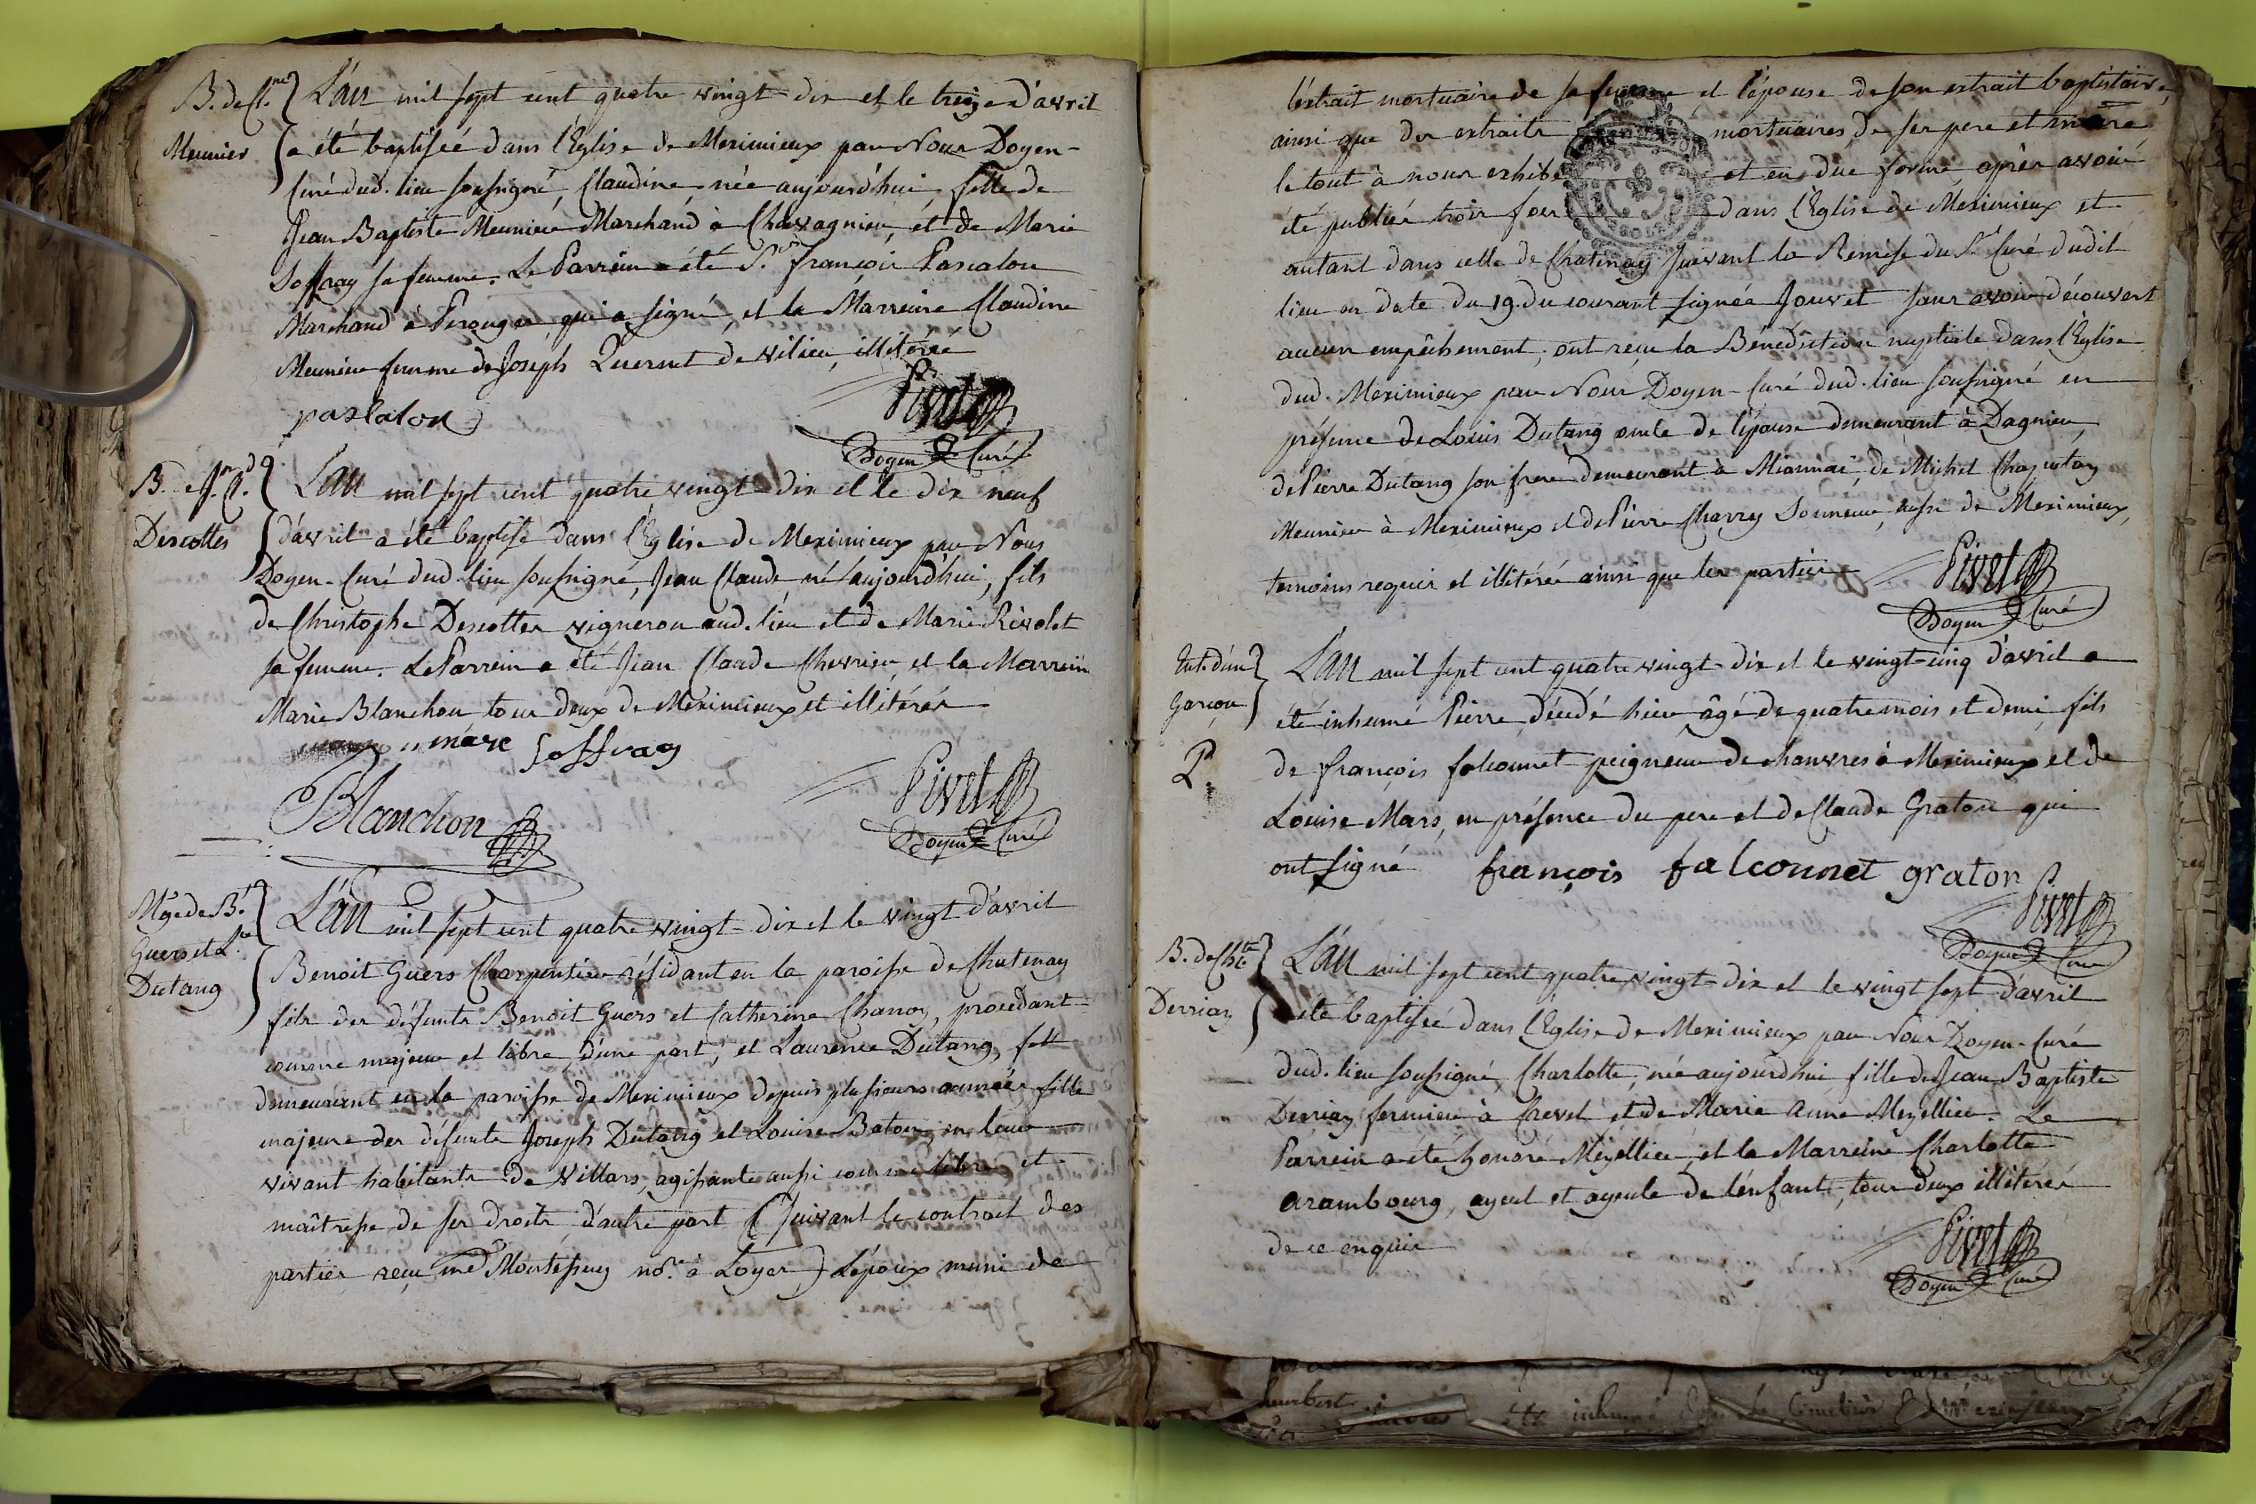 B. de Cl.ne
Meunier
L'an mil sept cent quatre vingt-dix et le treize d'avril
a été baptisée dans l'Eglise de Meximieux par Nous Doyen-
Curé dud. lieu soussigné, Claudine née aujourd'hui, fille de
Jean Baptiste Meunier Marchand à Chavagnieu, et de Marie
Soffray sa femme. Le Parrein a été Sr. françois Pascalon
Marchand à Perouges qui a signé, et la Marreine Claudine
Meunier femme de Joseph Quernet de vilieu, illiterée
paskalon
Pivet
Doyen Curé
B. de Jn. Cd.
Descottes
L'an mil sept cent quatre vingt-dix et le dix neuf
d'avril a été baptisé dans l'Eglise de Meximieux par Nous
Doyen-Curé dud. lieu soussigné, Jean Claude, né aujourd'hui, fils
de Christophe Descottes vigneron aud. lieu et de Marie Révolet
sa femme. Le Parrein a été Jean Claude Chevrier, et la Marreine
Marie Blanchon tous deux de Meximieux et illitérés
marc Soffray
Blanchon
Pivet
Doyen Curé
M.ge de B.t
Guers et L.ce
Dutang
L'an mil sept cent quatre vingt-dix et le vingt d'avril
Benoit Guers Charpentier résidant en la paroisse de Chatenay
fils des défunts Benoit Guers et Catherine Chanoy, procédant
comme majeur et libre, d'une part, et Laurence Dutang,
demeurant en la paroisse de Meximieux depuis plusieurs années fille
majeure des défunts Joseph Dutang et Louise Baton, en leur
vivant habitants de Villars, agissante aussi comme libre et
maîtresse de ses droits, d'autre part (suivant le contract des
parties reçu me Montessuy no.re à Loyes) L'époux muni de
l'extrait mortuaire de sa femme et l'épouse de son extrait baptistaire,
ainsi que des extraits mortuaires de ses pere et mere
le tout à nous exhibé et en due forme, après avoir
été publiés trois fois dans l'Eglise de Meximieux et
autant dans celle de Chatenay suivant la Remise du Sr Curé dudit
lieu en date du 19 du courant signée Jouvet sans avoir découvert
aucun empêchement, ont reçu la Bénédiction nuptiale dans l'Eglise
dud. Meximieux par Nous Doyen-Curé dud. lieu soussigné en
présence de Louis Dutang oncle de l'épouse demeurant à Dagnieu,
de Pierre Dutang son frere demeurant à Mionnai, de Michel Chapuitay
Meunier à Meximieux et de Pierre Charrey Sonneur, aussi de Meximieux,
temoins requis et illitérés ainsi que les parties
Pivet
Doyen Curé
Ent. d'un
Garçon
L'an mil sept cent quatre vingt-dix et le vingt-cinq d'avril a
été inhumé Pierre, décédé hier, âgé de quatre mois et demi, fils
de françois falconnet peigneur de chanvres à Meximieux et de
Louise Mars, en présence du pere et de Claude Graton qui
ont signé françois falconnet graton
Pivet
Doyen Curé
B. de Ch.te
Derriaz
L'an mil sept cent quatre vingt-dix et le vingt sept d'avril
a été baptisée dans l'Eglise de Meximieux par Nous Doyen-Curé
dud. lieu soussigné, Charlotte, née aujourd'hui fille de Jean Baptiste
Derriaz fermier à Crevel et de Marie Anne Mezellier. Le
Parrein a été honoré Mezellier, et la Marreine Charlotte
arambourg, ayeul et ayeule de l'enfant, tous deux illitérés
de ce enquis
Pivet
Doyen Curé